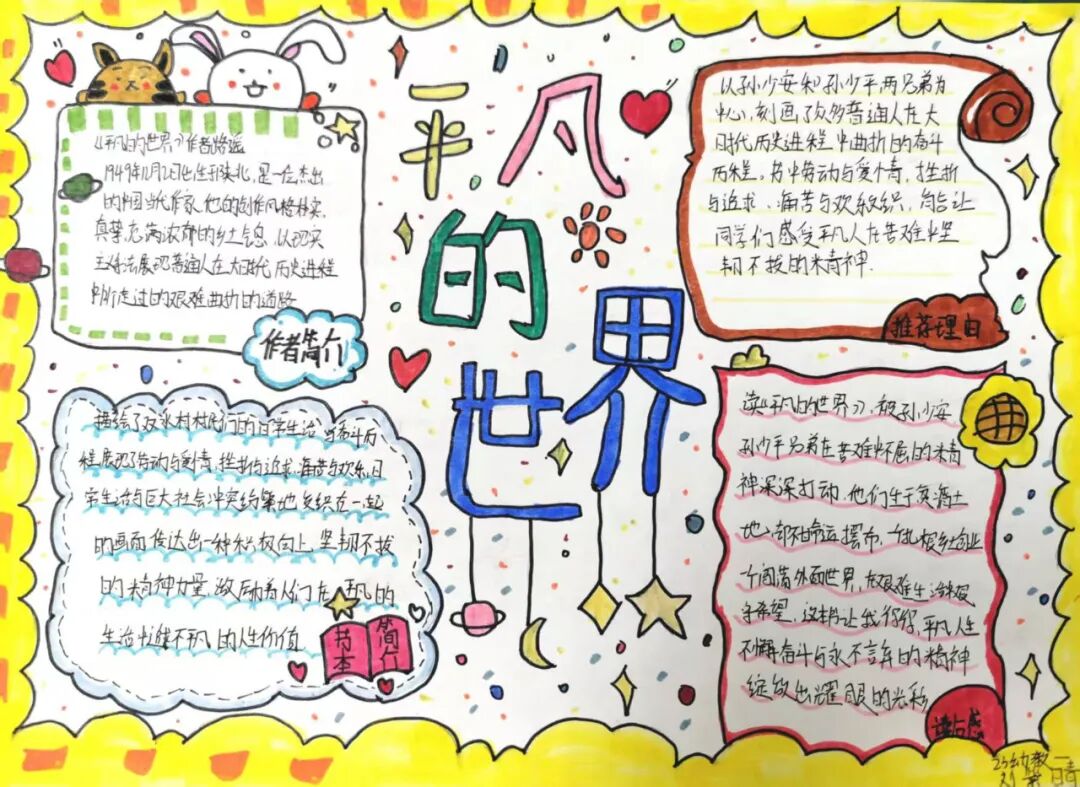 平凡
的
世界
《平凡的世界》作者路遥
1949年12月2日出生于陕北,是一位杰出
的中国当代作家,他的创作风格朴实、
真挚,充满浓郁的乡土气息,以现实
主义手法展现普通人在大时代历史进程
中所走过的艰难曲折的道路
作者简介
以孙少安和孙少平两兄弟为
中心,刻画了众多普通人在大
时代历史进程中曲折的奋斗
历程。书中劳动与爱情,挫折
与追求、痛苦与欢乐交织,旨在让
同学们感受平凡人在苦难中坚
韧不拔的精神.
推荐理由
描绘了双水村村民们的日常生活与奋斗历
程展现了劳动与爱情,挫折与追求,痛苦与欢乐,日
常生活与巨大社会冲突纷繁地交织在一起
的画面传达出一种积极向上,坚韧不拔
的精神力量,激励着人们在平凡的
生活中创造不平凡的人生价值
书本
简介
读《平凡的世界》,被孙少安
孙少平兄弟在苦难中不屈的精
神深深打动,他们生于贫瘠土
地,却不由命运摆布,一个扎根乡土创业
一个闯荡外面世界,在艰难生活里
希望,这书让我懂得,平凡人生
不懈奋斗与永不言弃的精神
绽放出耀眼的光彩
读后感